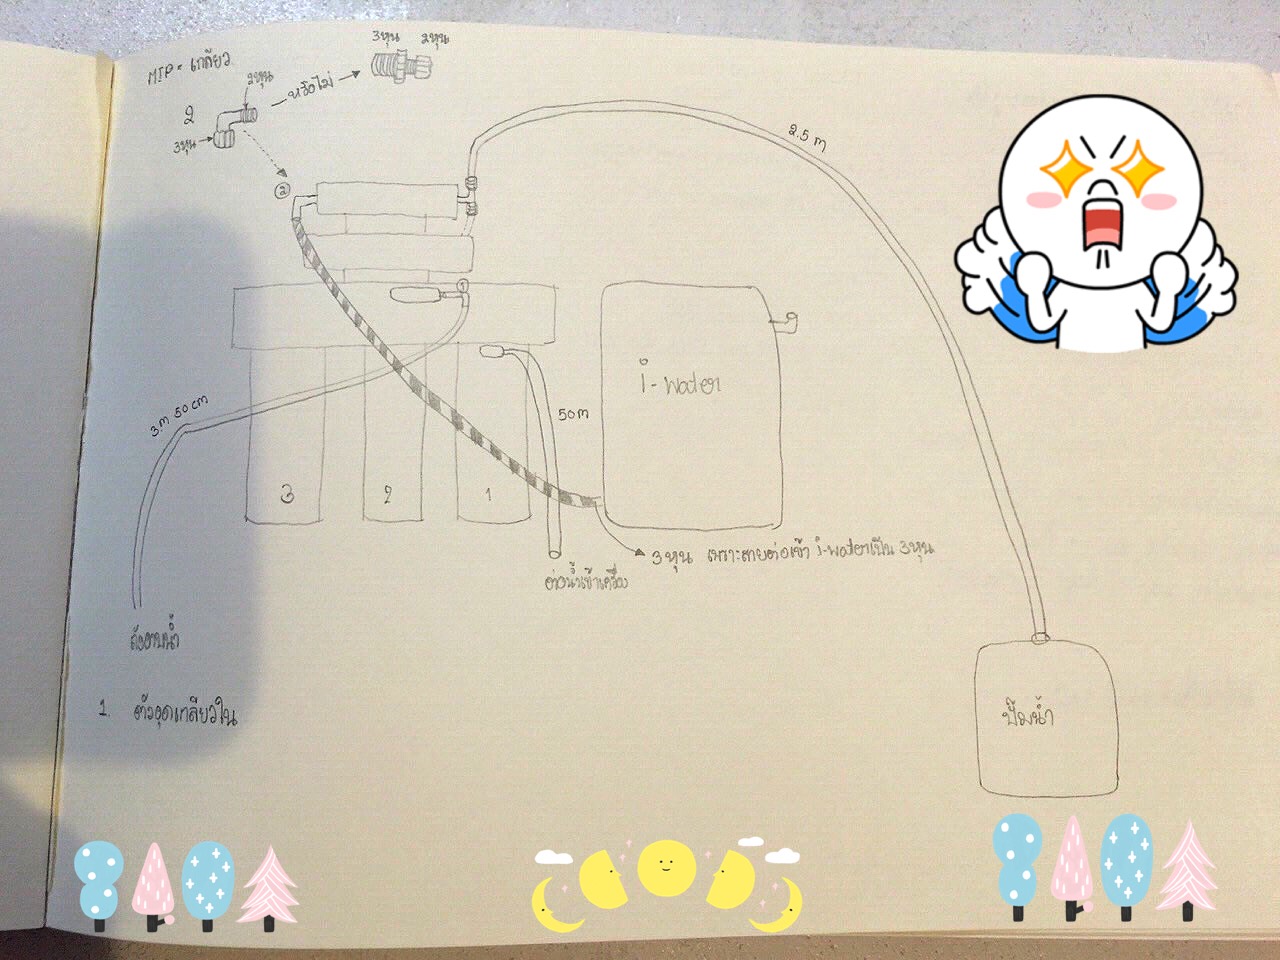 MIP = เกลียว
3หุน 2หุน
2หุน
หรือไม่
2
3หุน
2
2.5 m
1
i-water
3.m 50 cm
50m
3
2
1
3 หุน เพราะสายต่อเข้า i-waterเป็น 3หุน
ต่อน้ำเข้าเครื่อง
1.
ปั๊มน้ำ